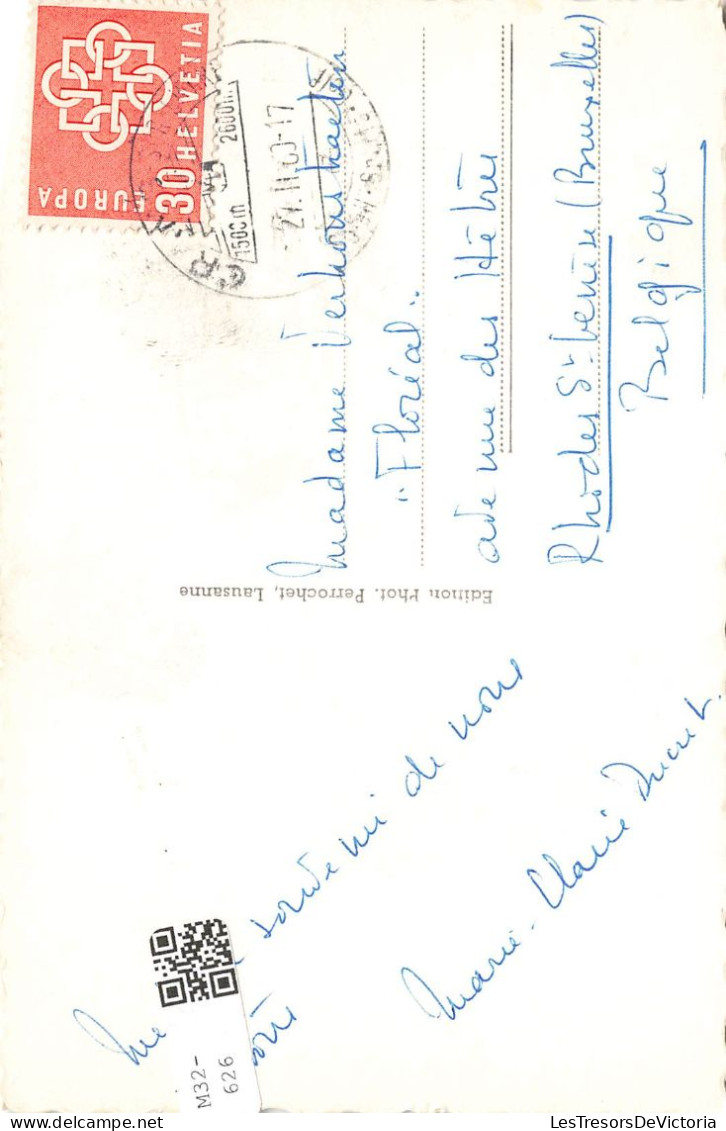 EUROPA
30 HELVETIA
CRANS
1500m 2600m
-17
Madame Verhoustraeten
"Floréal"
avenue des Hêtres
Rhodes St Genèse (Bruxelles)
Belgique
Edition Phot. Perrochet, Lausanne
souvenir de nous
Marie-Claire
M32-
626
LesTresorsDeVictoria